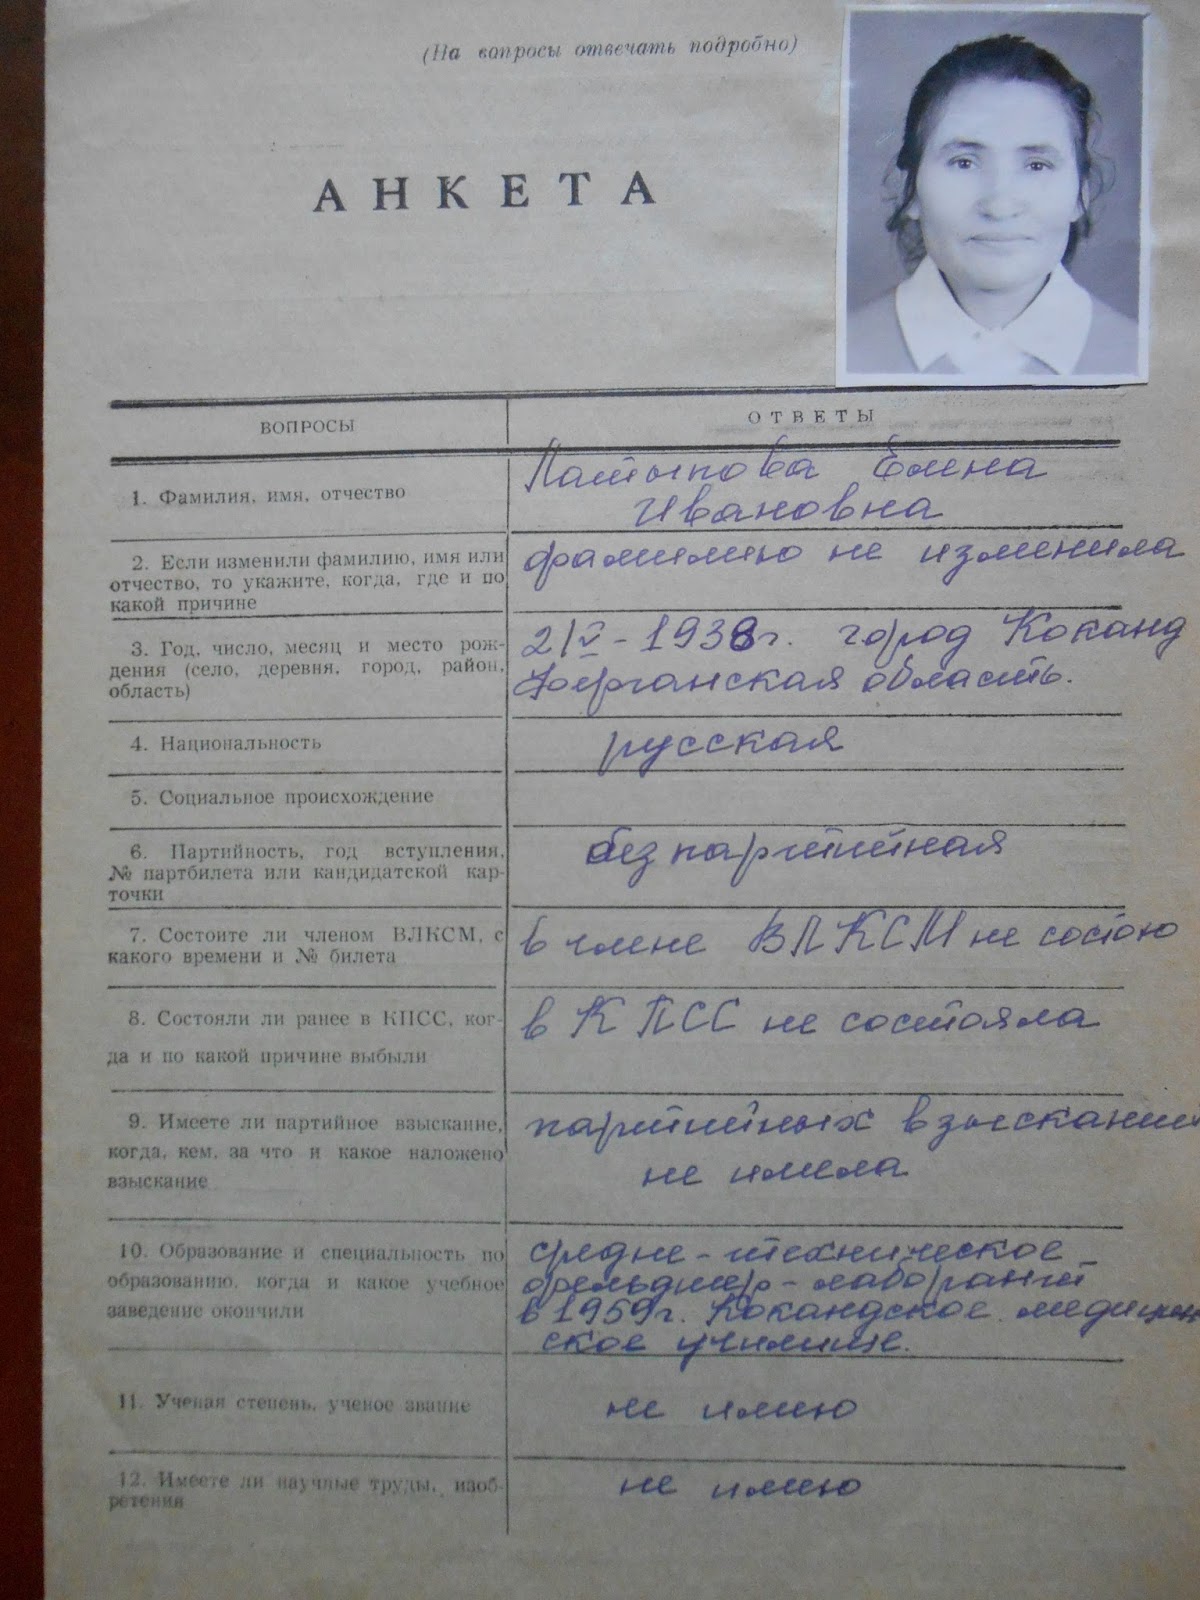 (На вопросы отвечать подробно)
АНКЕТА
ВОПРОСЫ
ОТВЕТЫ
1. Фамилия, имя, отчество
Латыпова Елена
Ивановна
2. Если изменили фамилию, имя или
отчество, то укажите, когда, где и по
какой причине
фамилию не изменила
3. Год, число, месяц и место рож-
дения (село, деревня, город, район,
область)
2/V-1938г. город Коканд
Ферганская область.
4. Национальность
русская
5. Социальное происхождение
6. Партийность, год вступления,
№ партбилета или кандидатской кар-
точки
безпартийная
7. Состоите ли членом ВЛКСМ, с
какого времени и № билета
в члене ВЛКСМ не состою
8. Состояли ли ранее в КПСС, ког-
да и по какой причине выбыли
в КПСС не состояла
9. Имеете ли партийное взыскание,
когда, кем, за что и какое наложено
взыскание
партийных взыскании
не имела
10. Образование и специальность по
образованию, когда и какое учебное
заведение окончили
средне-техническое
фельдшер-лаборант
в 1959г. Кокандское медицин
ское училище.
11. Ученая степень, ученое звание
не имею
12. Имеете ли научные труды, изоб-
ретения
не имею